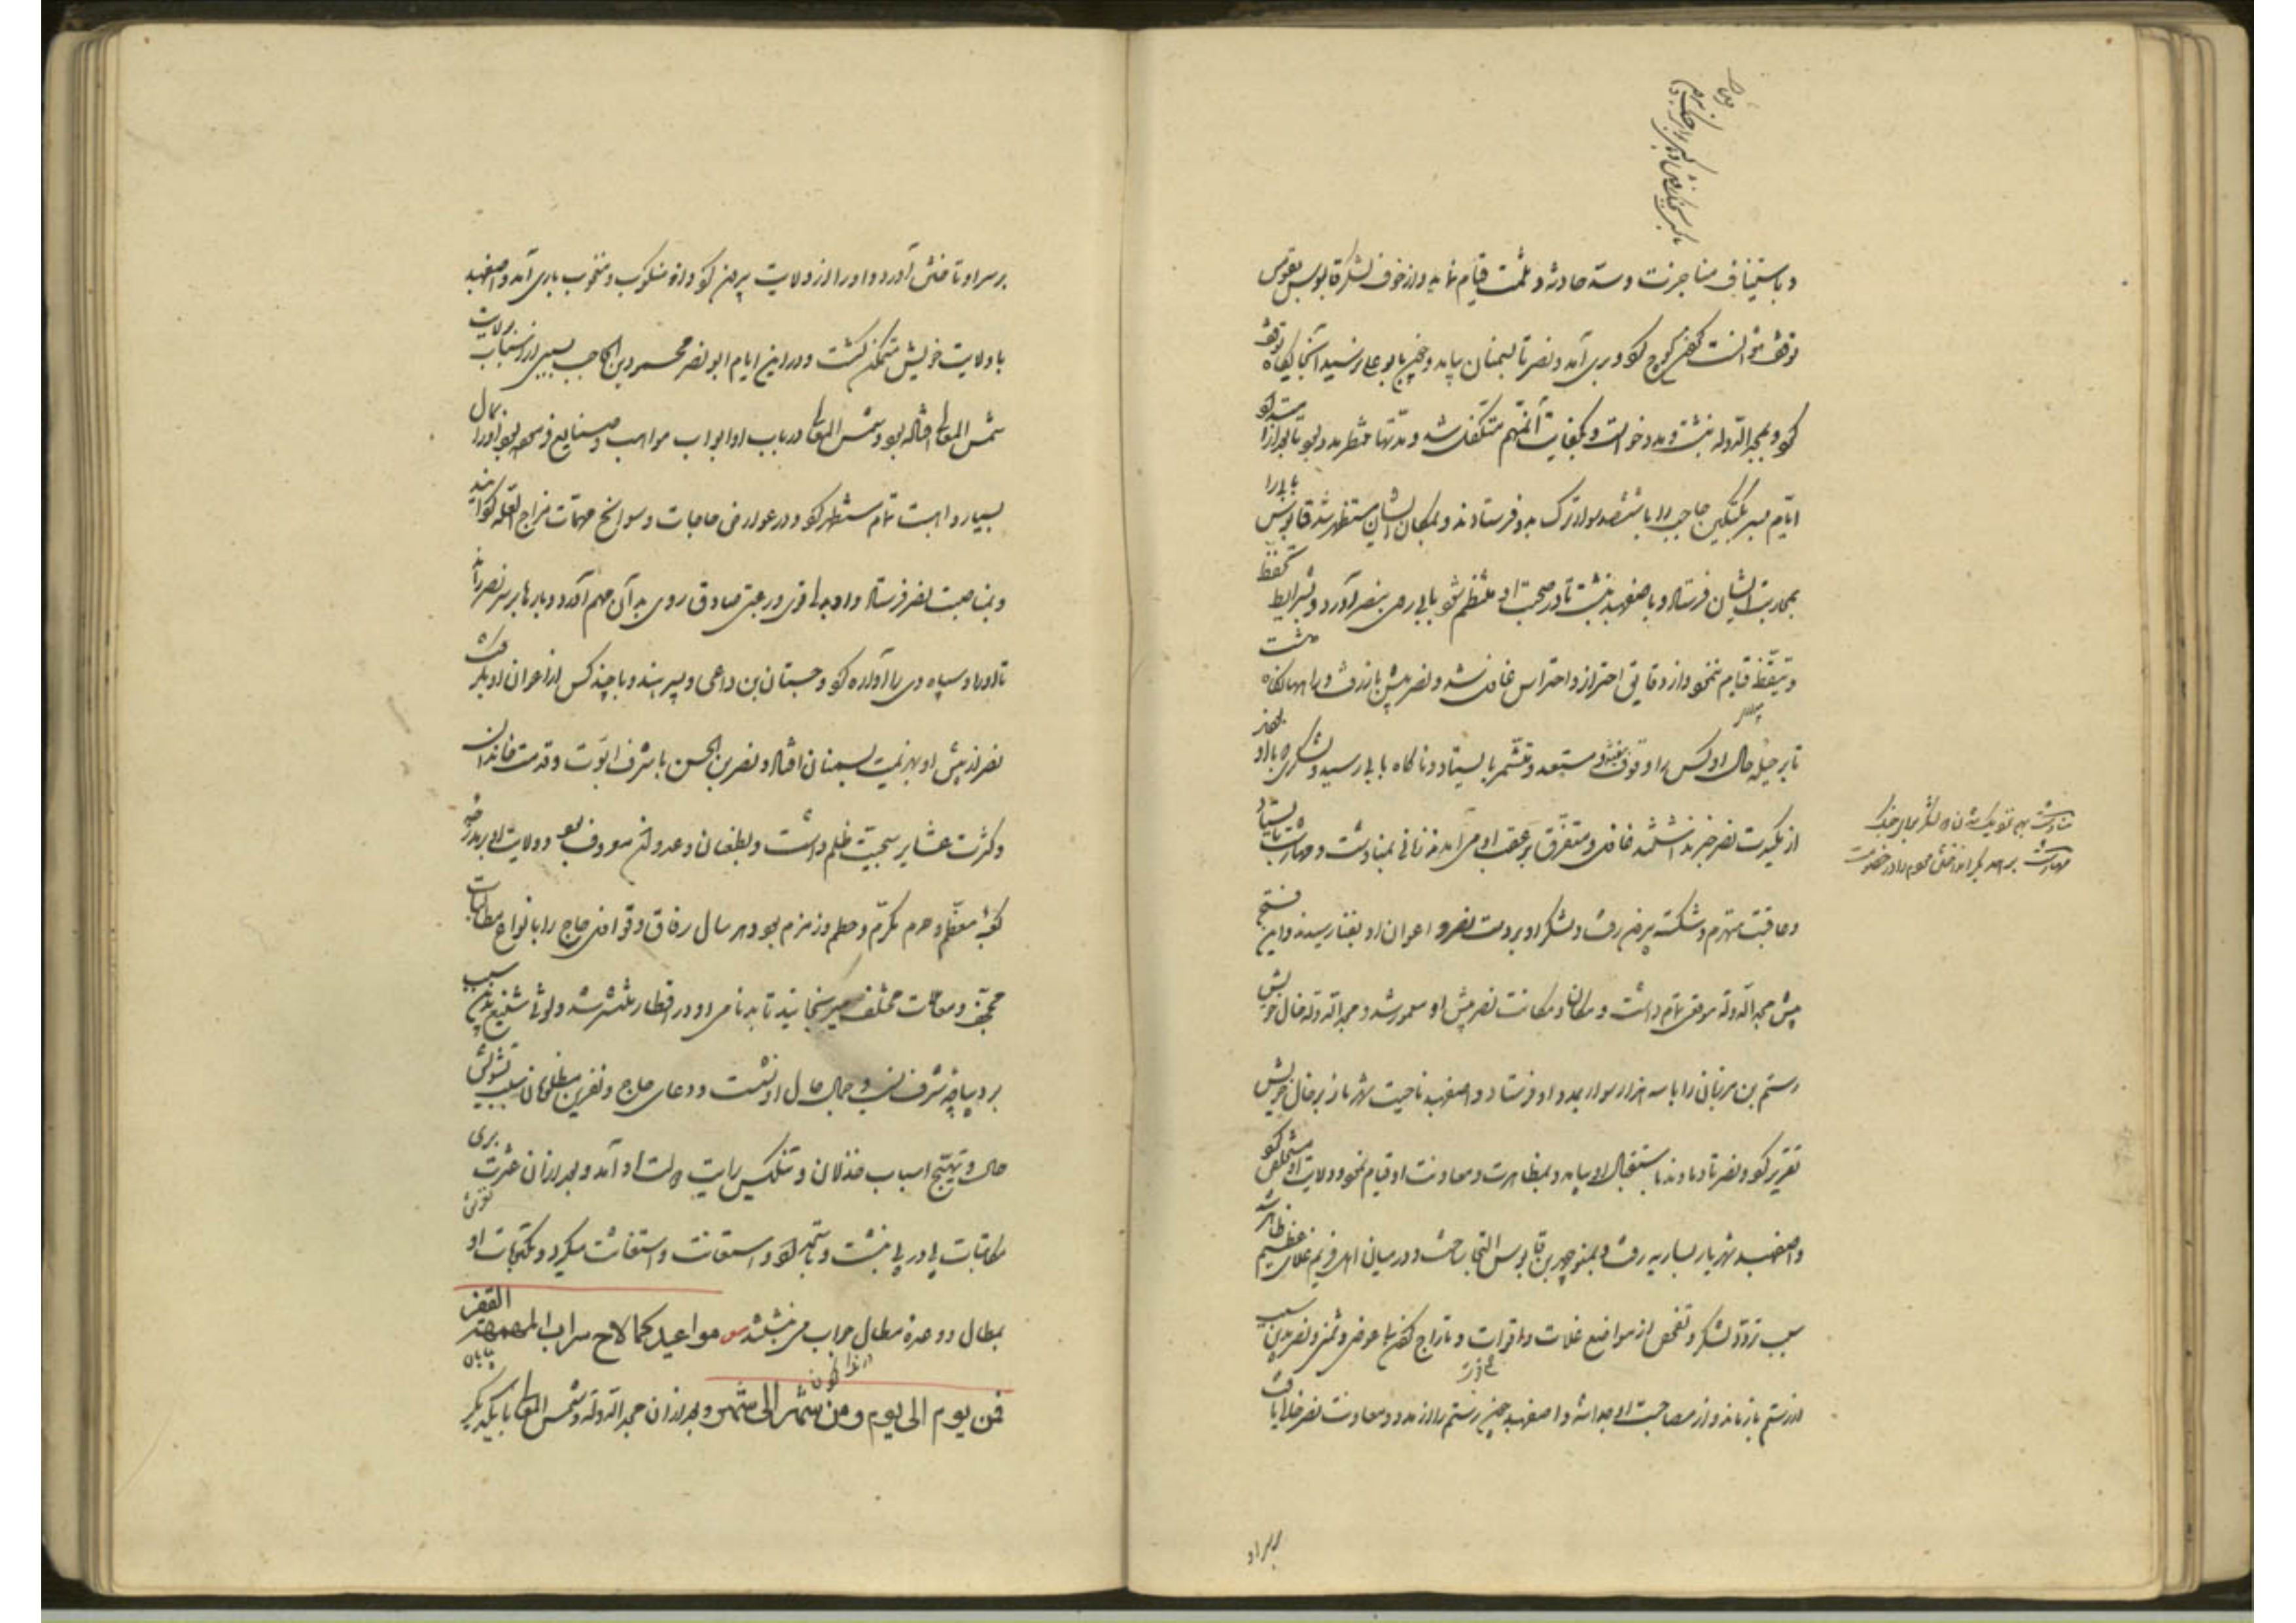 و باستیناف مناجزت و سد حادثه و ثلمت قیام نماید و از خوف لشکر قابوس بقومس
توقف نتوانست کردن کوچ کرد و بری آمد و نصر تا بسمنان بیامد و چون بابو علی رسید آنجایگاه توقف
کرد و بمجدالدوله نبشت و مدد خواست و بکفایت آن مهم متکفل شد و مدتها منتظر مدد بود تا بعد از آن
ایام پسر بکتکین حاجب را با ششصد سوار ترک بدو فرستادند و بمکان ایشان مستظهر شد قابوس بابی را
بمحاربت ایشان فرستاد و باصفهبد نبشت تا در صحبت او منتظم شود بابی روی بنصر آورد و بشرایط تحفظ
و تیقظ قیام ننمود و از دقایق احتراز و احتراس غافل شد و نصر پیش باز رفت و راهها نگاه داشت
تا بر حیله حال او کس را وقوف نیفتد و مستعد و متشمر بایستاد و ناگاه بابی رسید و لشکری با او
از یکدیگر خبر نداشتند غافل و متفرق بر عقب او می آمدند زمانی بمناوشت و مهارشت بایستاد
و عاقبت منهزم و شکسته بیرون رفت و لشکر او بر دست نصر و اعوان او بفنا رسیدند و این فتح
پیش مجدالدوله موقعی تمام داشت و مکان و مکانت نصر پیش او معمور شد و مجدالدوله خال خویش
رستم بن مرزبان را با سه هزار سوار بمدد او فرستاد و اصفهبد ناحیت شهریار بر خال خویش
تقریر کرد و نصر تا دماوند باستقبال او بیامد و بمظاهرت و معاونت او قیام نمود و ولایت او مستخلص کرد
و اصفهبد شهریار بساریه رفت و بمنوچهر بن قابوس التجا ساخت و در میان اهل فریم غلای عظیم ظاهر شد
سبب تردد لشکر و تفحص از مواضع غلات و اقوات و تاراج کردن بی عوض و ثمن و نصر بدین سبب
از رستم باز ماند و از مصاحبت او جدا شد و اصفهبد چون رستم را از مدد و معاونت نصر خالی یافت
مناوشت
مهارشت
بر سر او
بر سر او تاختن آورد و او را از ولایت بیرون کرد و او منکوب و منخوب بری آمد و اصفهبد
با ولایت خویش متمکن گشت و در این ایام ابو نصر محمود بن الحاجب بسببی از اسباب بولایت
شمس المعالی افتاده بود و شمس المعالی در باب او ابواب مواهب و صنایع مفتوح بود و او را بمال
بسیار و اهبت تمام مستظهر کرد و در عوارض حاجات و سوانح مهمات مزاح العله گردانید
و بمناصبت نصر فرستاد و او بدلی قوی و رغبتی صادق روی بدان مهم آورد و بارها بر سر نصر راند
تا او را و سپاه وی را آواره کرد و جستان بن داعی و پسر هندو با چند کس از اعوان او بگرفت
نصر از پیش او بهزیمت بسمنان افتاد و نصر بن الحسن با شرف ابوت و قدمت خاندان
و کثرت عشایر سجیت ظلم داشت و بطغیان و عدوان معروف بود و ولایت او بر ممر
کعبه معظم و حرم مکرم و حطیم و زمزم بود و هر سال رفاق و قوافل حاج را بانواع مطالبات
مجحف و معاملات مختلف میرنجانید تا بدنامی او در اقطار منتشر شد و لوثی شنیع بدین سبب
بر دیباجه شرف نسب و جمال حال او نشست و دعای حاج و نفرین مظلومان سبب تشویش
حال و تهییج اسباب خذلان و تنکیس رایت دولت او آمد و بعد از آن عثرت بری
مکاتبات پیاپی نبشت و استمداد کرد و استعانت و استغاثت میکرد و مکتوبات او
بمطال و وعده مطال جواب می نبشتند مواعید کما لاح سراب المهمه القفر
فمن یوم الی یوم و من شهر الی شهر و بعد از آن مجدالدوله و شمس المعالی با یکدیگر